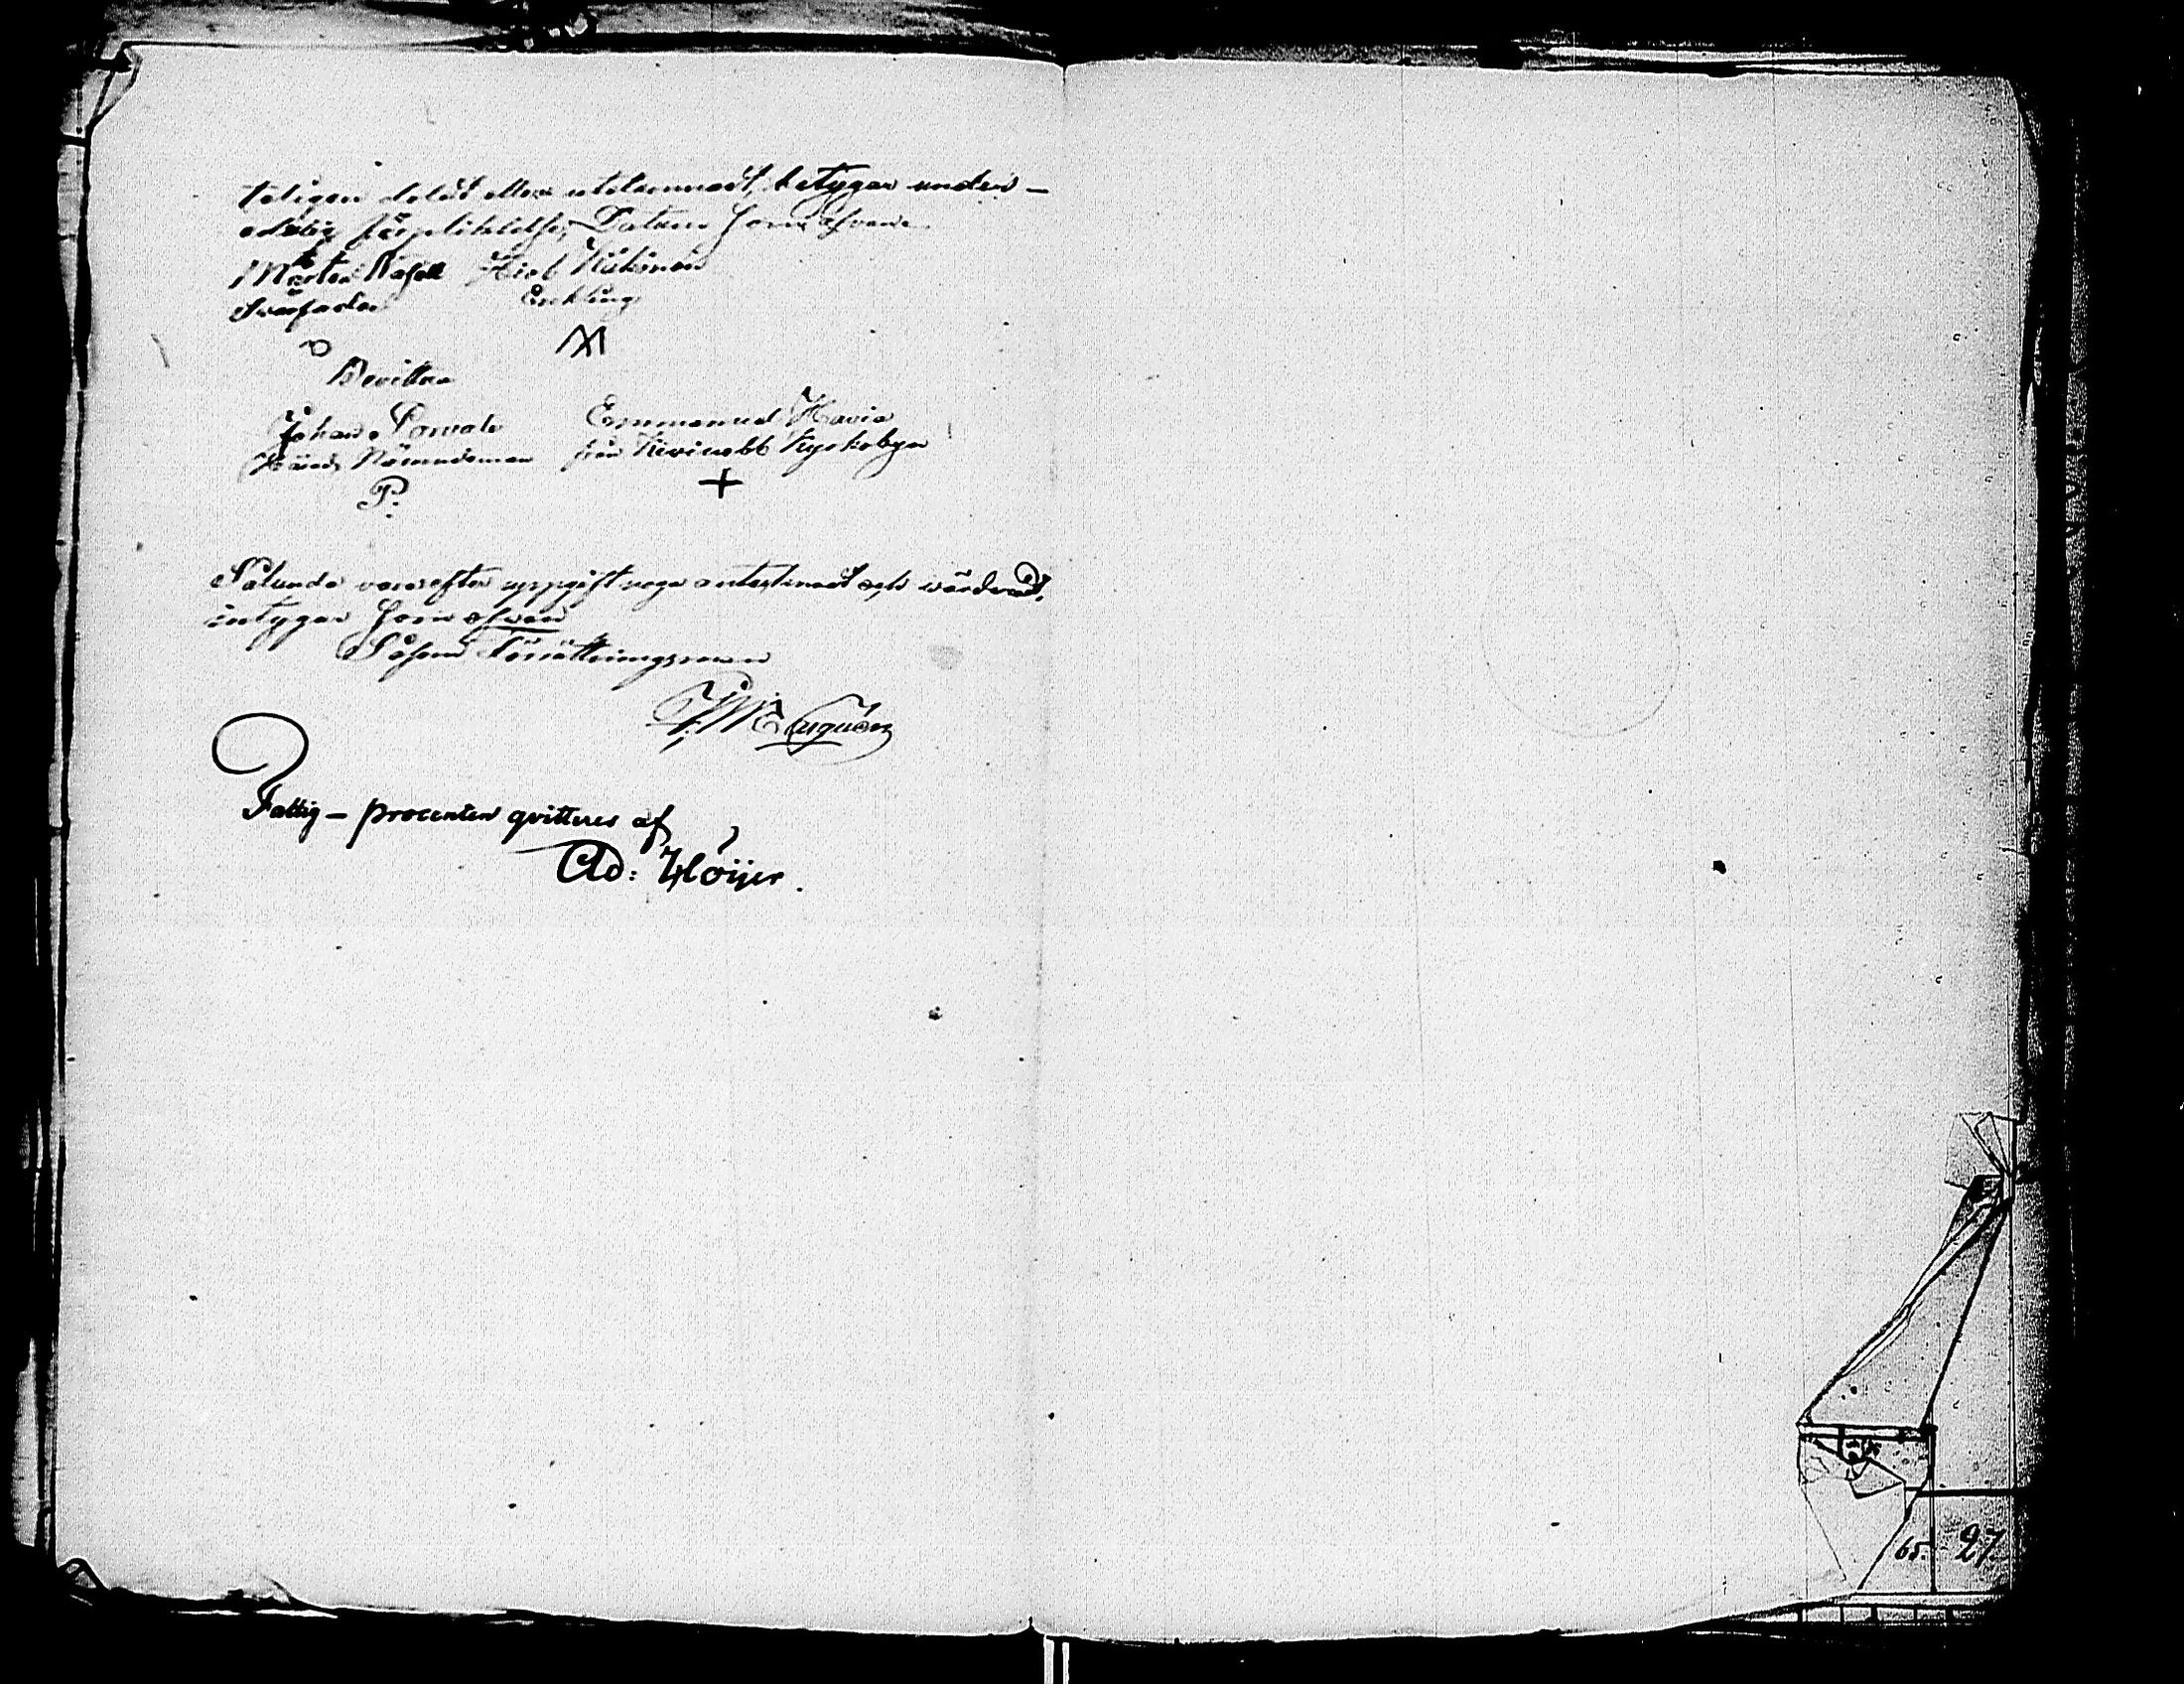 teligen doldt eller utelemnadt, betygar under
edelig förpliktelse, Datum som ofvan
Mårten Hiob Häkinen
Svärfader Enkling
M
Bevittna
Johan Porvali Emmanuel Havia
Härads Nämndeman från Kivinebb Kyrkobyn
P. +
Sålunda vara efter uppgift noga antecknadt och värderadt,
intygar som ofvan
Såsom Förrättningsman
Fattig-procenten qvitteres af
Ad: Höijer.
65. 27